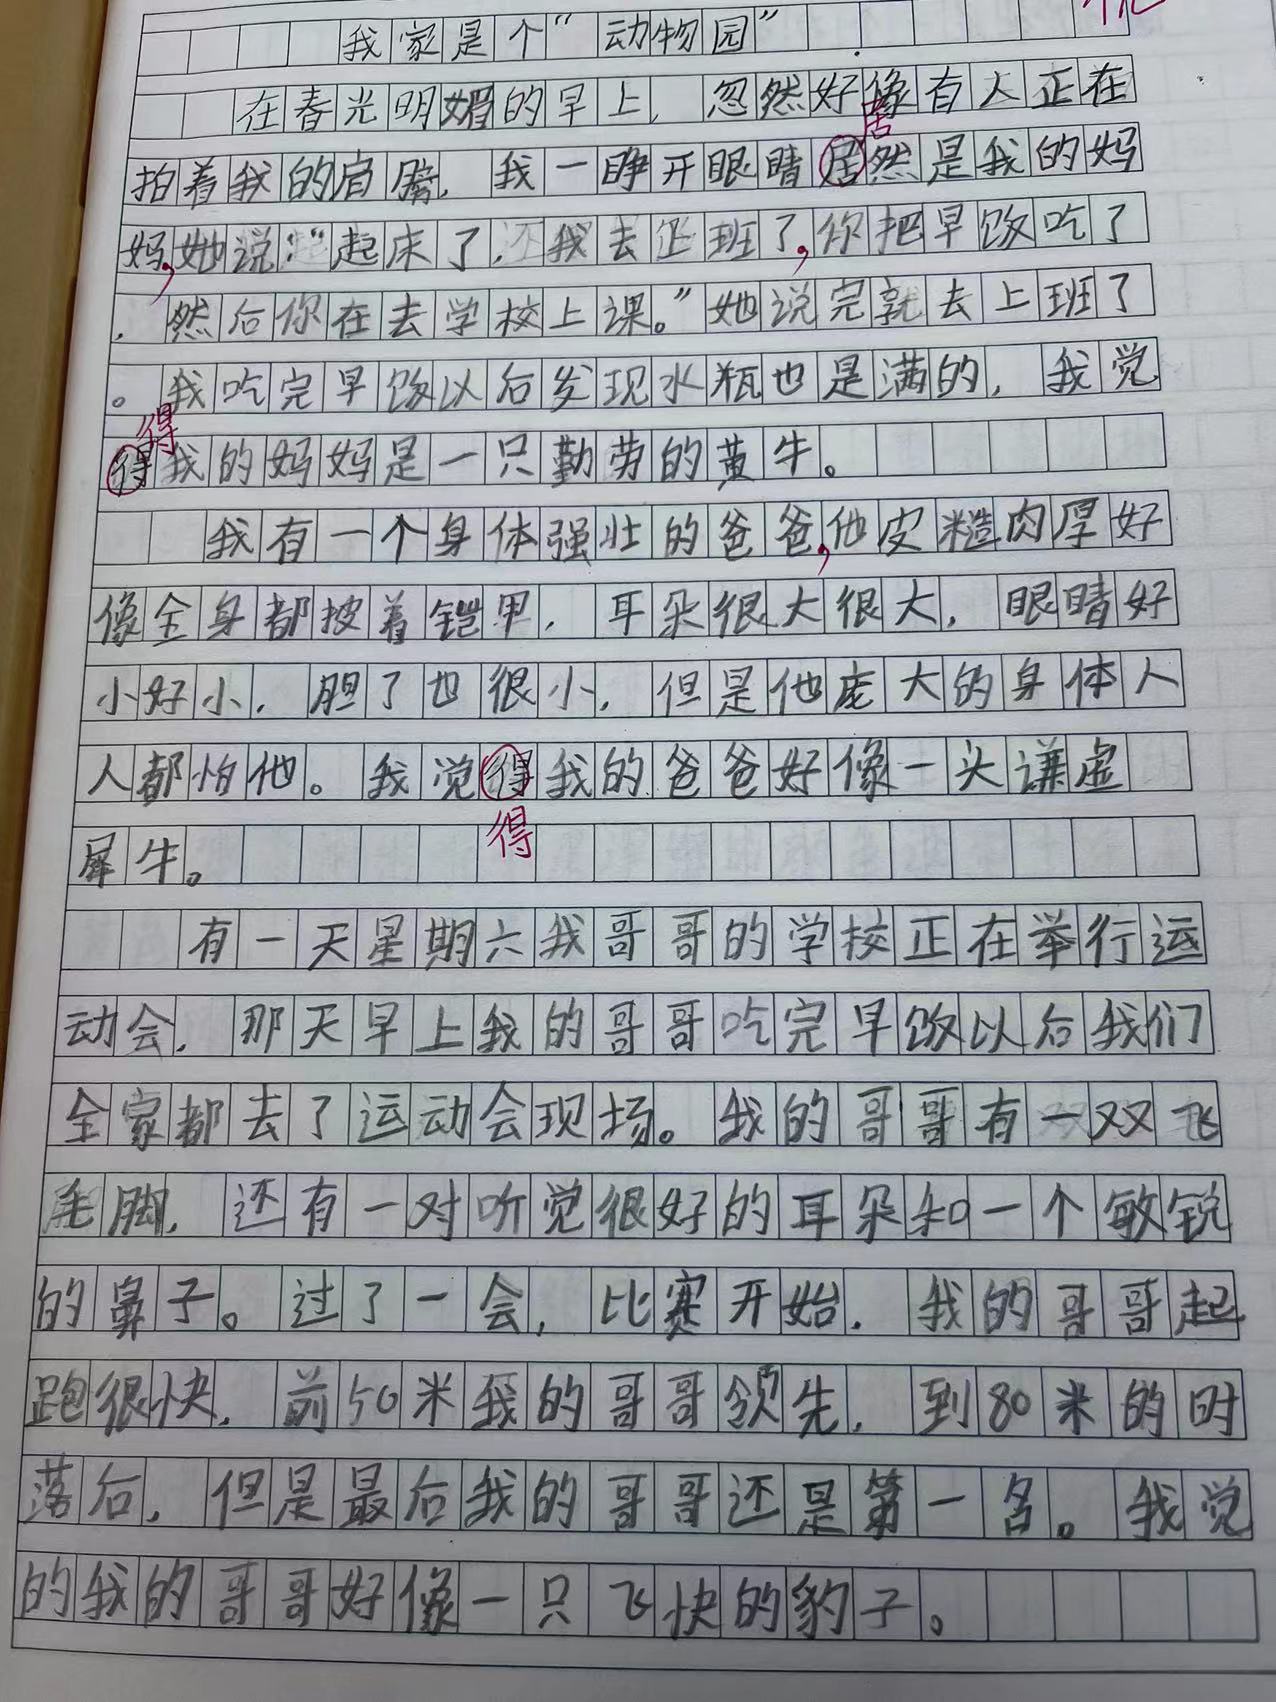 我家是个“动物园”
在春光明媚的早上，忽然好像有人正在
居
拍着我的肩膀，我一睁开眼睛居然是我的妈
妈，她说：“起床了，还我去上班了，你把早饭吃了
，然后你在去学校上课。”她说完就去上班了
。我吃完早饭以后发现水瓶也是满的，我觉
得
得我的妈妈是一只勤劳的黄牛。
我有一个身体强壮的爸爸，他皮糙肉厚好
像全身都披着铠甲，耳朵很大很大，眼睛好
小好小，胆了也很小，但是他庞大的身体人
人都怕他。我觉得我的爸爸好像一头谦虚
得
犀牛。
有一天星期六我哥哥的学校正在举行运
动会，那天早上我的哥哥吃完早饭以后我们
全家都去了运动会现场。我的哥哥有一双飞
毛脚，还有一对听觉很好的耳朵和一个敏锐
的鼻子。过了一会，比赛开始，我的哥哥起
跑很快，前50米我的哥哥领先，到80米的时
落后，但是最后我的哥哥还是第一名。我觉
的我的哥哥好像一只飞快的豹子。